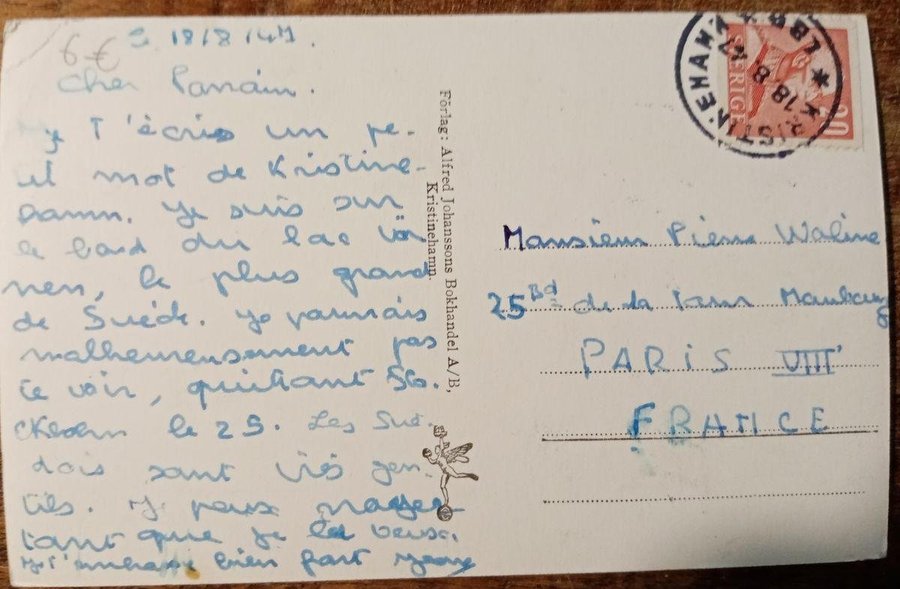 6 €
18/8/47.
Cher Parrain.
Je t'écris un pe-
tit mot de Kristine-
hamn. Je suis sur
le bord du lac Vä-
nern, le plus grand
de Suède. Je
malheureusement pas
te voir, quittant Sto-
ckholm le 29. Les Sué-
dois sont très gen-
tils. Je peux nager
tant que je veux.
Je t'embrasse bien fort
Förlag: Alfred Johanssons Bokhandel A/B,
Kristinehamn.
KRISTINEHAMN 1
18.8.47
LBR
SVERIGE
20
Monsieur Pierre Waline
25 Bd de la Tour Maubourg
PARIS VIII
FRANCE